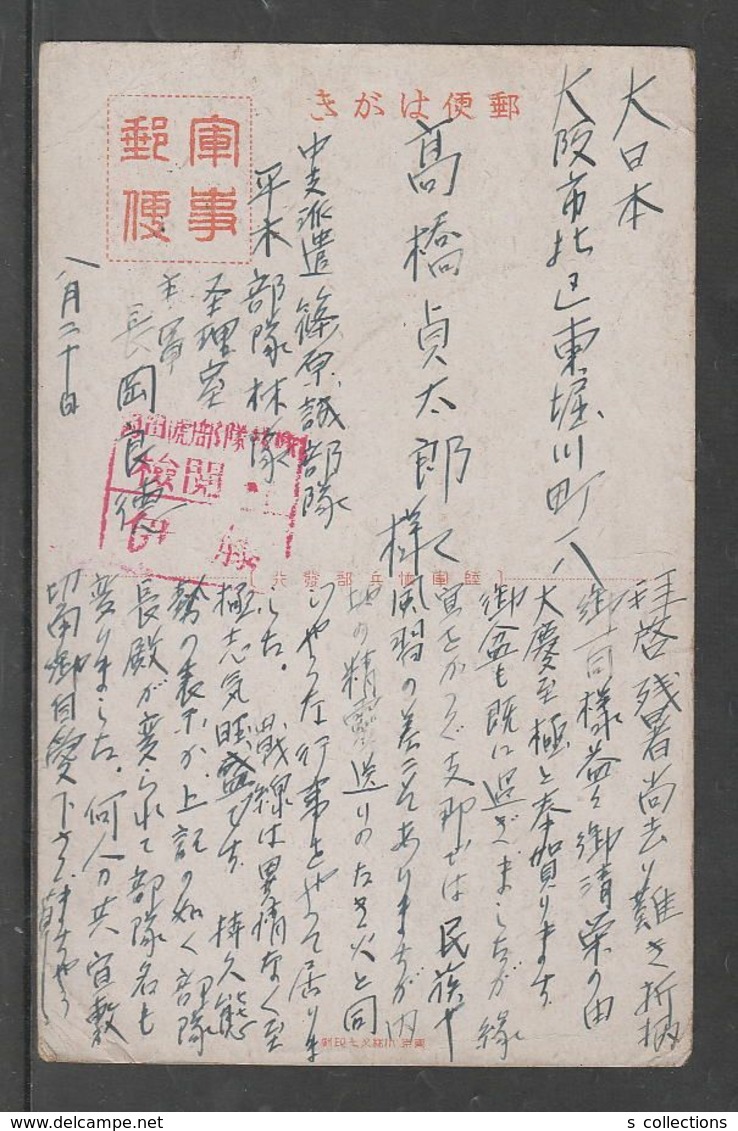 郵便はがき
軍事
郵便
大日本
大阪市北区東堀川町一八
髙橋貞太郎様
中支派遣篠原誠部隊
平木部隊林隊
経理室
主軍
長岡良德
八月二十日
検閲
拝啓残暑尚去り難き折柄
御一同様益々御清栄の由
大慶至極と奉賀ります
御盆も既に過ぎましたが緑
風習の差こそありますが内
地の精霊送りのたき火と同
じやうな行事をやつて居りま
した。戦線は異情なく至
極志気旺盛です 持久態
勢の表示か、上記の如く部隊
長殿が変られて部隊名も
変りました。何分共宜敷
切角御自愛下さいますやう
s collections